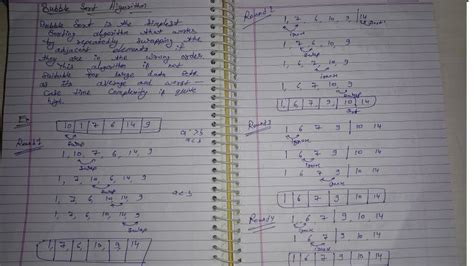 Bubble Sort Algorithm
Bubble Sort is the simplest
Sorting algorithm that works
by repeatedly swapping the
adjacent elements if
they are in the wrong order.
This algorithm is not
Suitable for large data sets
as its average and worst-
Case time Complexity is quite
high.
Ex
10 1 7 6 14 9
Round 1
Swap
1, 10, 7, 6, 14, 9
Swap
1, 7, 10, 6, 14, 9
Swap
1, 7, 6, 10, 14, 9
1, 7, 6, 10, 14, 9
Swap
1 7 6 10 9 14
Round 2
1, 7, 6, 10, 9 14
1, 7, 6, 10, 9
Swap
1, 6, 7, 10, 9
1, 6, 7, 10, 9
Swap
1 6 7 9 10 14
Round 3
1 6 7 9 10 14
1 6 7 9
1 6 7 9
1 6 7 9 10 14
Round 4
1 6 7 9 10 14
1 6 7 9 10 14